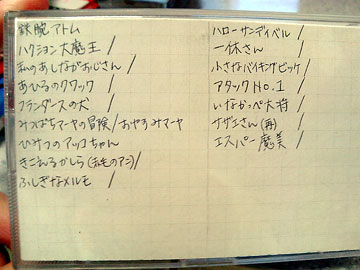 鉄腕アトム
ハクション大魔王 /
私のあしながおじさん /
あひるのクワック /
フランダースの犬 /
みつばちマーヤの冒険 / おやすみマーヤ
ひみつのアッコちゃん
きこえるかしら (赤毛のアン) /
ふしぎなメルモ /
ハローサンディベル /
一休さん /
小さなバイキングビッケ /
アタックNo.1 /
いなかっぺ大将 /
サザエさん (再) /
エスパー魔美 /